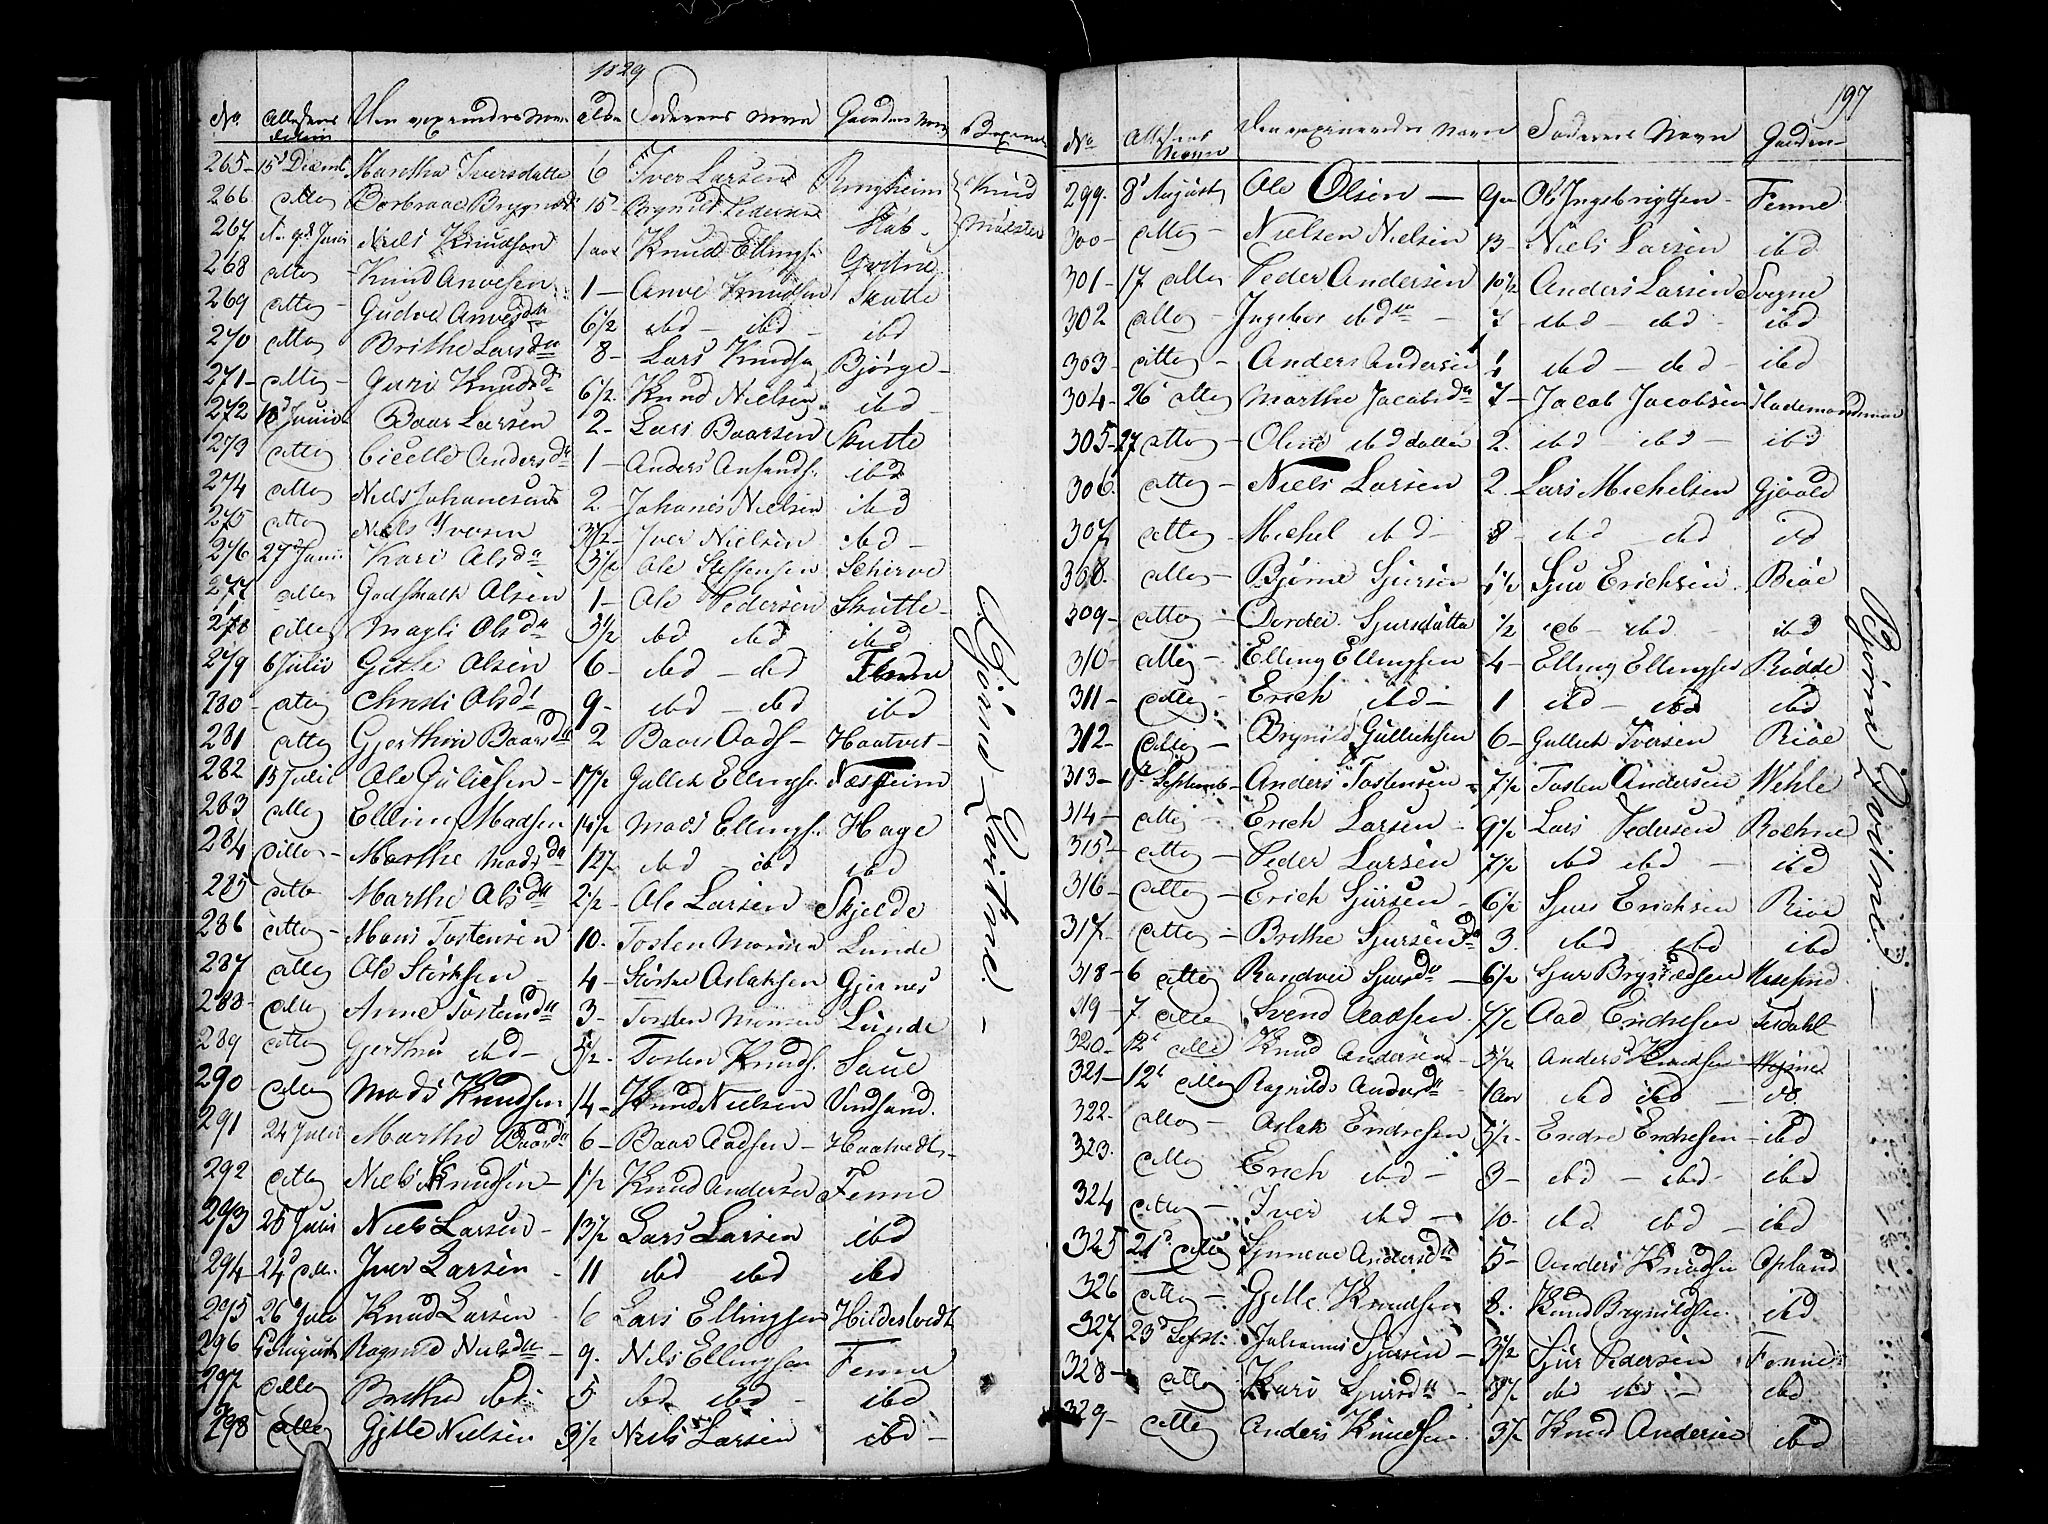 1829
No Attestens Den vaxineredes Navn Alder Faderens Navn Gaardens Navn
265 15d Decemb Martha Iversdatter 6 Iver Larsen Ringheim Knud
266 atto 15 Stab Mølster
267 9d Juni Niels Knudson 1 aar Knud Ellings. Gvitne
268 atto Knud Anvesen 1 Anve Knudsen Skutle
269 atto Gudve Anvesd 6 1/2 ibd ibd ibd
270 atto Brithe Larsd 8 Lars Knudsen Bjørge
271 atto Guri Knudsd 6 1/2 Knud Nielsen ibd
272 18d Junii Baar Larsen 2 Lars Baarsen Skutle
273 atto Cicelle Andersd 1 Anders ibd
274 atto Niels Johanesen 2 Johanes Nielsen ibd
275 atto Niels Iversen 3 1/2 Iver Nielsen ibd
276 27d Juni Kari Olsd 3 1/2 Ole Steffensen Schirve
277 atto Godskalk Olsen 1 Ole Pedersen Skutle
278 atto Magli Olsd 3 1/2 ibd ibd ibd
279 6 Julio Gitle Olsen 6 ibd ibd Fenne
280 atto Christi Olsd 9 ibd ibd ibd
281 atto Gjerthrú Baarsd 2 Baar Aads Haatvet
282 15 Julii Ole Guliksen 1 1/2 Gullik Ellings. Næsheim
283 atto Elling Madsen 14 1/2 Mads Ellings. Hage
284 atto Marthe Madsd 12 ibd ibd ibd
285 atto Marthe Olsd 2 1/2 Ole Larsen Skjelde
286 atto Mons Tostensen 10 Tosten Monsen Lunde
287 atto Ole Størksen 4 Størke Aslaksen Gjernes
288 atto Anne Tostensd 3 Tosten Monsen Lunde
289 atto Gjerthru ibd 5 1/2 Tosten Knuds. Saue
290 atto Mads Knudsen 14 Knud Nielsen Vindsand
291 24 Julii Marthe Baarsd 6 Baar Aadsen Haatvedt
292 atto Niels Knudsen 1 1/2 Knud Andersen Fenne
293 25 Julii Niels Larsen 13 1/2 Lars Larsen ibd
294 24d atto Iver Larsen 11 ibd ibd ibd
295 26 Julo Knud Larsen 6 Lars Ellingsen Hildesvedt
296 August Ragnild Nielsd 9 Nils Ellingsen Fenne
297 atto Brithe ibd 5 ibd ibd ibd
298 atto Gjetle Nielsen 3 1/2 Niels Larsen ibd
Bjørne Qvitne
197
No Attestens Navn Den vaxineredes Navn Faderens Navn Gaarden
299 8d August Ole Olsen 9 Ol Ingebrigtsen Fenne
300 atto Nielsen Nielsen 13 Niels Larsen ibd
301 17 atto Peder Andersen 10 1/2 Anders Larsen Tvegne
302 atto Ingebor ibd 7 ibd ibd ibd
303 atto Anders Andersen 1 ibd ibd ibd
304 26 atto Marthe Jacobsd 7 Jacob Jacobsen
305 27 atto Oline ibd datter 2 ibd ibd ibd
306 atto Niels Larsen 2 Lars Michelsen Gjøald
307 atto Michel ibd 8 ibd ibd
308 atto Bjørne Sjursen 1 1/2 Sjur Erichsen Riöe
309 atto Dorder Sjursdatter 1/2 ibd ibd
310 atto Elling Ellingsen 4 Elling Ellingsen Rödde
311 atto Erich ibd 1 ibd ibd ibd
312 atto Brynild Gullicksen 6 Gullich Iversen Riöe
313 1d Septemb Anders Tostensen 7 1/2 Tosten Andersen Wehle
314 atto Erich Larsen 9 1/2 Lars Pedersen Roehne
315 atto Peder Larsen 7 1/2 ibd ibd ibd
316 atto Erich Sjursen 6 1/2 Sjur Erichsen Riöe
317 atto Brithe Sjursend 3 ibd ibd ibd
318 6 atto Randvei Sjursd 6 1/2 Sjur Brynildsen
319 7 atto Svend Aadsen 7 1/2 Aad Endresen
320 12d atto Knud Andersen 5 1/2 Anders Knudsen
321 12d atto Ragnilds Andersd 1 aar ibd ibd
322 atto Aslak Endresen 5 1/2 Endre Endresen ibd
323 atto Erich ibd 3 ibd ibd ibd
324 atto Iver ibd 10 ibd ibd ibd
325 21d atto Synneve Andersd 5 Anders Knudsen Opland
326 atto Gjelle Knudsen 8 Knud Brynildsen ibd
327 23d Sept: Johannes Sjursen 3 1/2 Sjur Pedersen Fenne
328 atto Kari Sjursd 8 1/2 ibd ibd ibd
329 atto Anders Knudsen 3 1/2 Knud Andersen ibd
Bjørne Qvitne